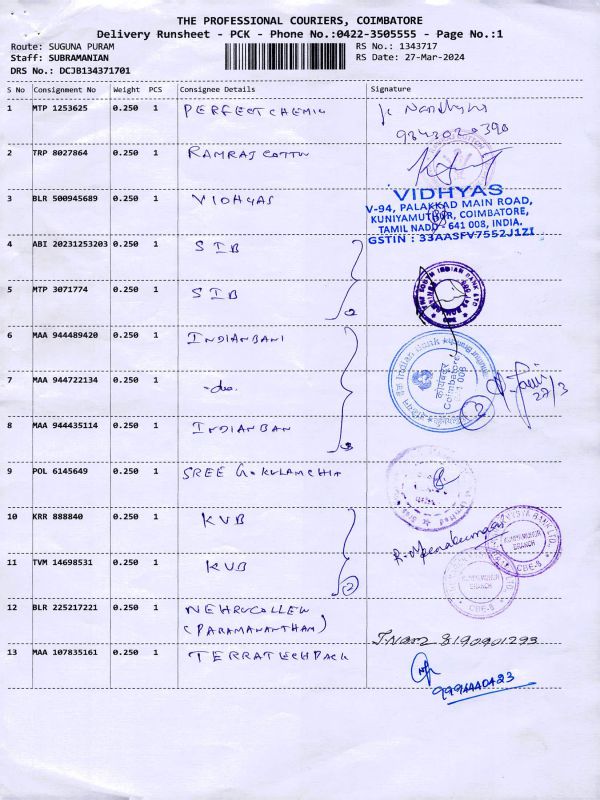 THE PROFESSIONAL COURIERS, COIMBATORE
Delivery Runsheet - PCK - Phone No.:0422-3505555 - Page No.:1
Route: SUGUNA PURAM RS No.: 1343717
Staff: SUBRAMANIAN RS Date: 27-Mar-2024
DRS No.: DCJB134371701
S No Consignment No Weight PCS Consignee Details Signature
1 MTP 1253625 0.250 1 PERFECT CHEMIC
9343020390
2 TRP 8027864 0.250 1 RAMRAJ COTTON
3 BLR 500945689 0.250 1 VIDHYAS
VIDHYAS
V-94, PALAKKAD MAIN ROAD,
KUNIYAMUTHUR, COIMBATORE,
TAMIL NADU - 641 008, INDIA.
GSTIN : 33AASFV7552J1ZI
4 ABI 20231253203 0.250 1 SIB
5 MTP 3071774 0.250 1 SIB
2
THE SOUTH INDIAN BANK LTD
6 MAA 944489420 0.250 1 INDIANBANI
7 MAA 944722134 0.250 1 -do-
8 MAA 944435114 0.250 1 INDIANBAN
3
Indian Bank
कोयंबटूर
Coimbatore
27/3
9 POL 6145649 0.250 1 SREE GOKULAM CHIT
10 KRR 888840 0.250 1 KVB
11 TVM 14698531 0.250 1 KVB
2
R. Menakumari
KUNIYAMUTHUR
BRANCH
CBE-8
12 BLR 225217221 0.250 1 NEHRUCOLLEW
(PARAMANANTHAM)
8190901293
13 MAA 107835161 0.250 1 TERRATECHPACK
9994440423